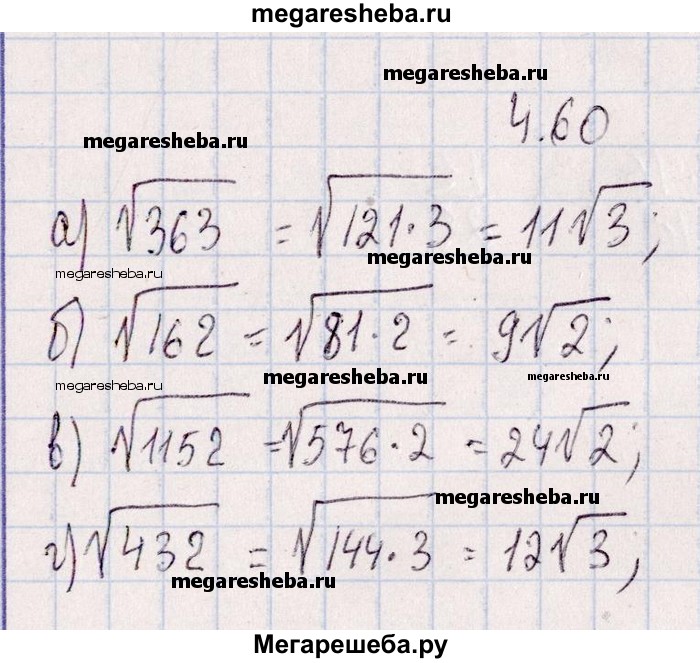 megaresheba.ru
megaresheba.ru
4.60
megaresheba.ru
а) √363 = √121·3 = 11√3;
megaresheba.ru
megaresheba.ru
б) √162 = √81·2 = 9√2;
megaresheba.ru
megaresheba.ru
megaresheba.ru
в) √1152 = √576·2 = 24√2;
megaresheba.ru
г) √432 = √144·3 = 12√3;
megaresheba.ru
Мегарешеба.ру